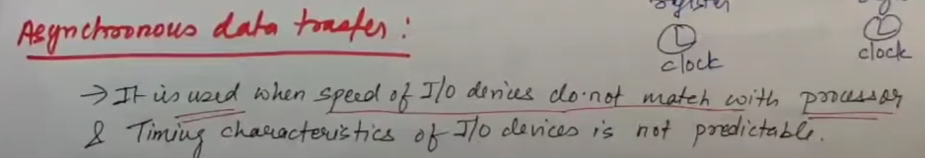 register
Asynchronous data transfer :
clock clock
→ It is used when speed of I/O devices do not match with processor
& Timing characteristics of I/O devices is not predictable.